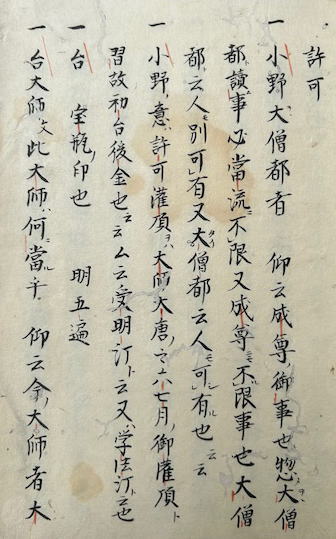 許可
一小野大僧都者 仰云成尊御事也惣大僧
都讀事必當流不限又成尊不限事也大僧
都云人モ別可有又大僧都云人モ可有也云云
一小野意許可灌頂ヲハ大師大唐ニテ六七月御灌頂ト
習故初台後金也云云ム云受明汀ト云又学法汀ト云也
一台 宝瓶印也 明五遍
一台大師文此大師ハ何ニ當ル乎 仰云今大師者大